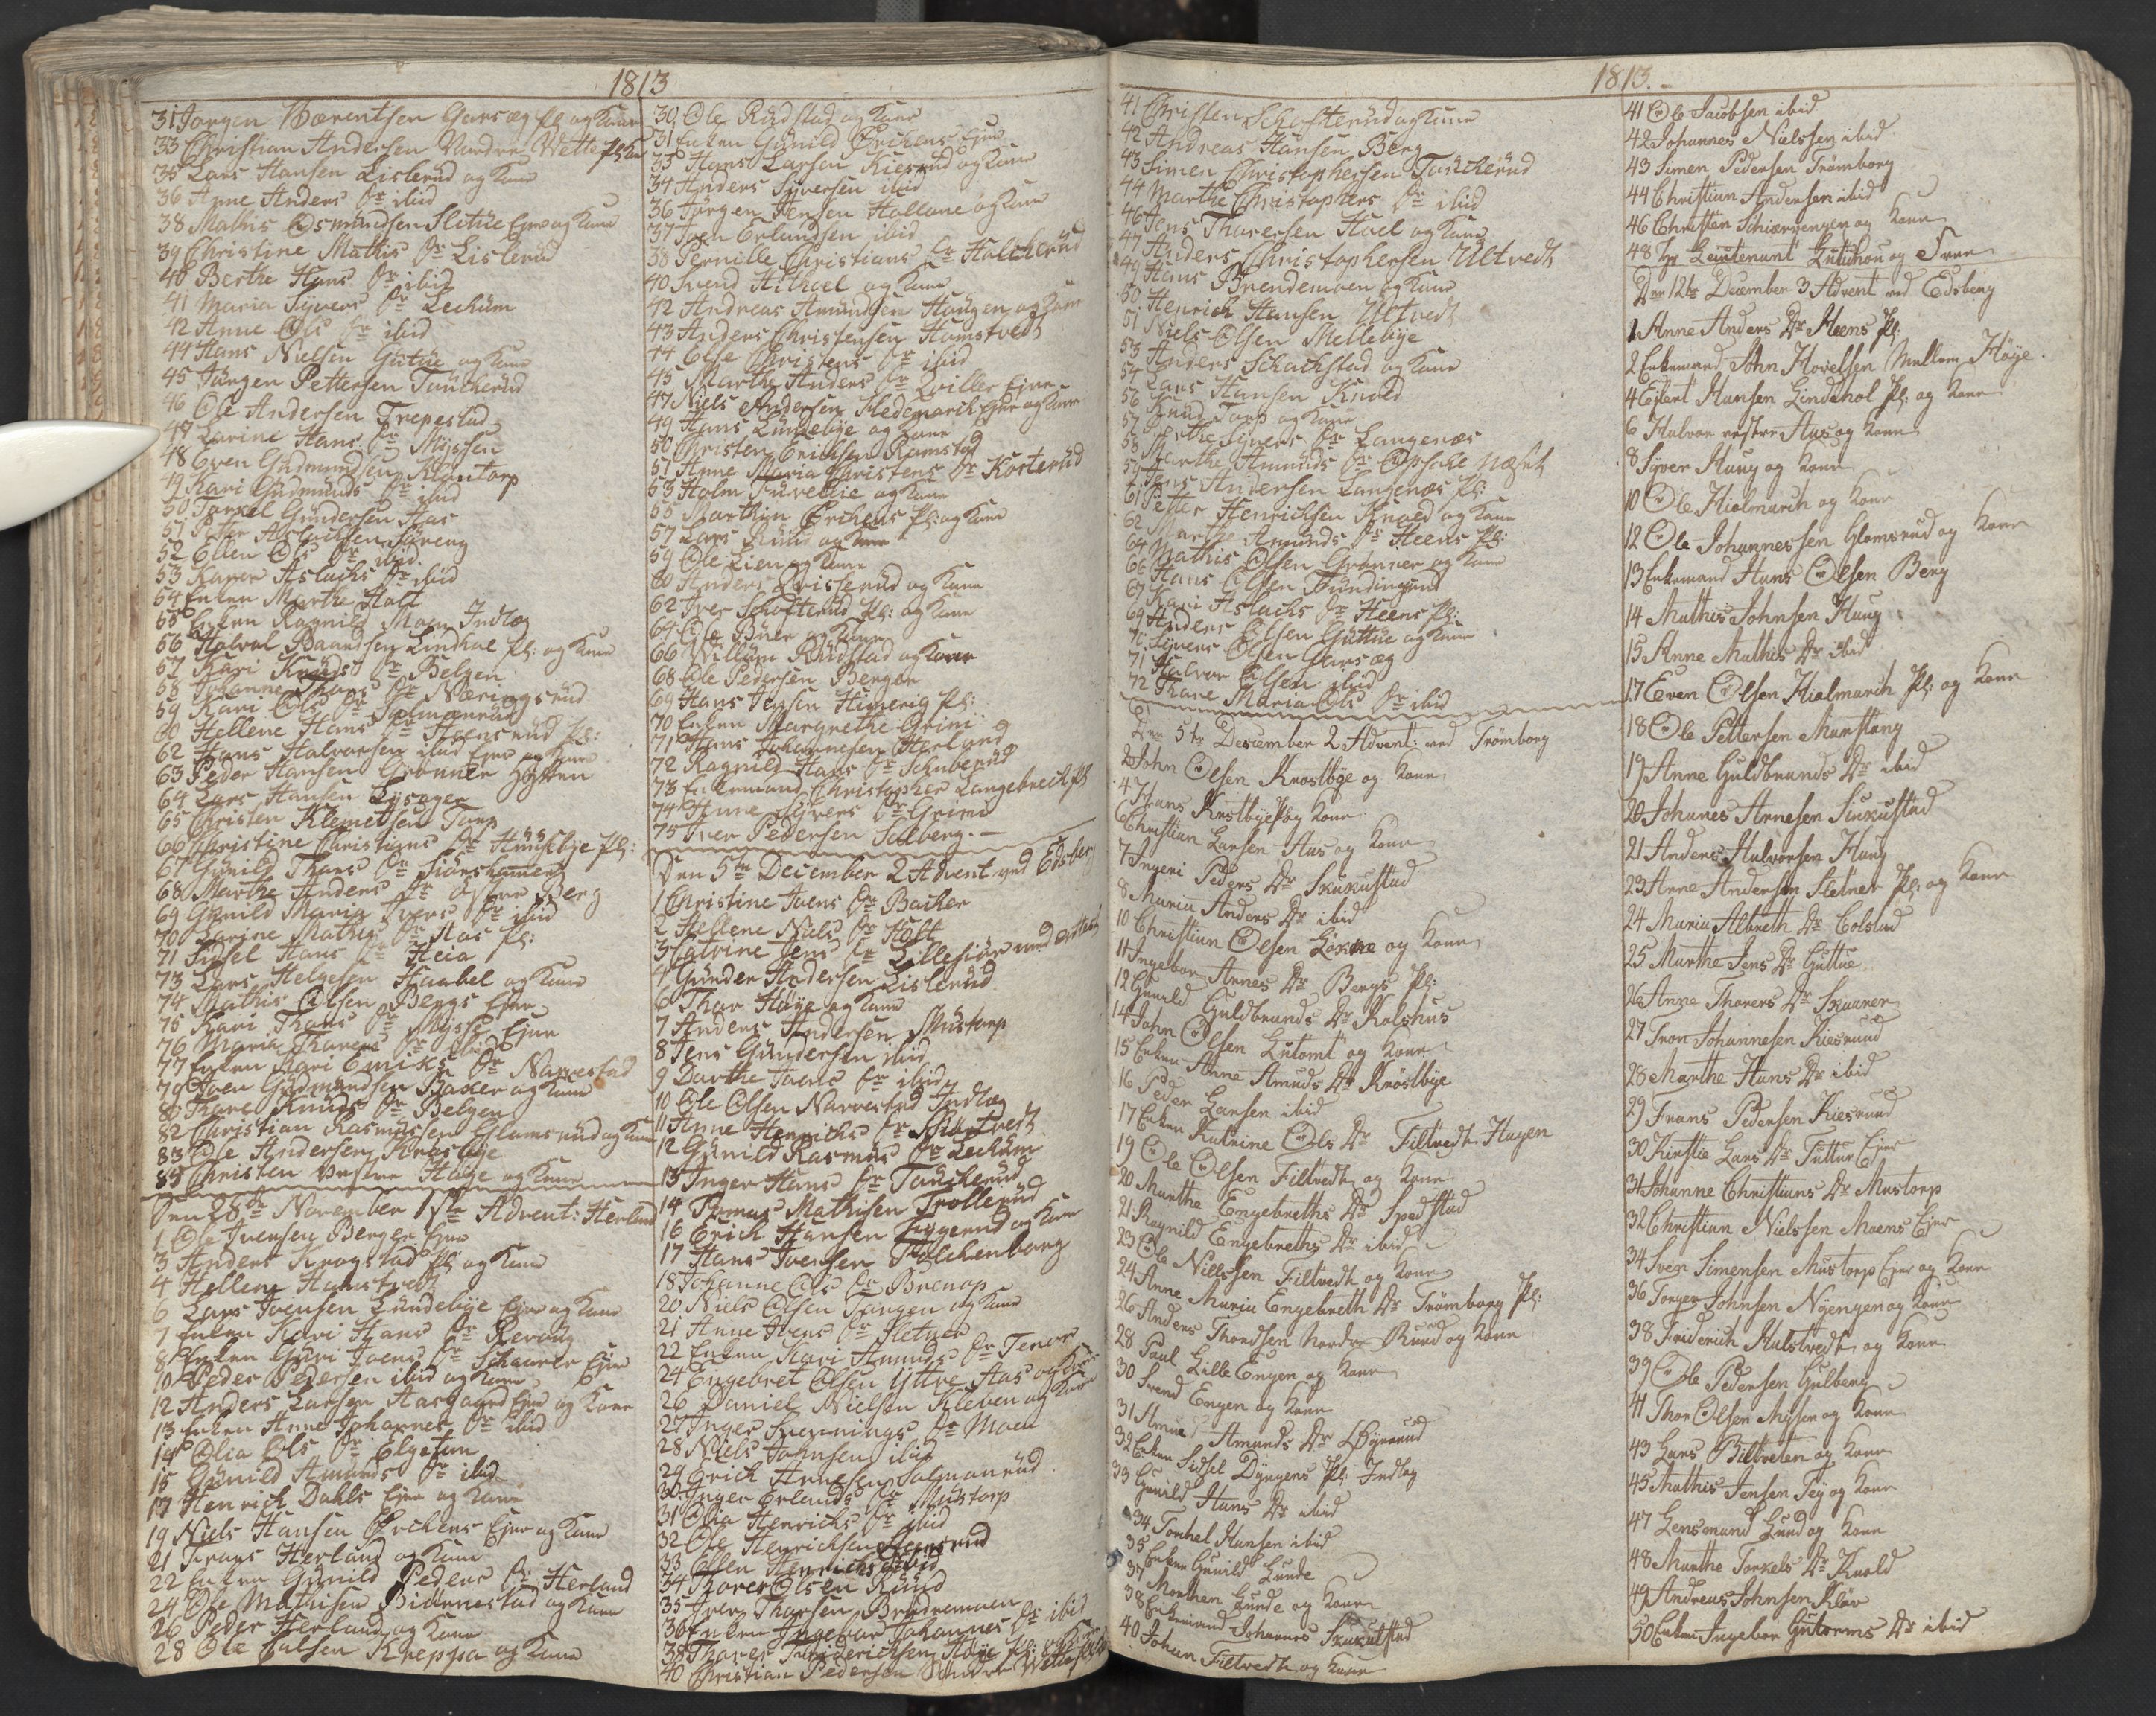 1813
31 Jørgen Bærentsen Garsæg Pl. og Kone
33 Christian Andersen Nordre Wette Pl. Kone
35 Lars Hansen Lislerud og Kone
36 Anne Anders Dr ibid
38 Mathis Osmundsen Sletue Ejer og Kone
39 Christine Mathis Dr Lislerud
40 Berthe Hans Dr ibid
41 Maria Syvers Dr Lechum
42 Anne Ols Dr ibid
44 Hans Nielsen Gutue og Kone
45 Jürgen Pettersen Tancherud
46 Ole Andersen Trepestad
47 Karine Hans Dr Myssen
48 Even Gudmundsen Klontorp
49 Kari Gudmunds Dr ibid
50 Torkel Gundersen Aas
51 Peter Aslachsen Sareng
52 Ellen Ols Dr ibid
53 Karen Aslachs Dr ibid
54 Enken Marthe Holt
55 Enken Ragnild Moen Indlæg
56 Halvol Baardsen Lindhol Pl: og Kone
57 Kari Knuds Dr Belgen
58 Johanne Thors Dr Næringsrud
59 Kari Ols Dr Solmonrud
60 Hellene Hans Dr Heensrud Pl:
62 Hans Halvorsen ibid Ejer og Kone
63 Peder Hansen Grønner Høgtten
64 Lars Hansen Lysager
65 Christen Klemetsen Torp
66 Christine Christians Dr Huusebye Pl:
67 Gunild Thors Dr Siørshamer
68 Marthe Anders Dr østre Berg
69 Gunild Maria Ivers Dr ibid
70 Karine Mathis Dr Aas Pl:
71 Sidsel Hans Dr Heia
73 Lars Helgesen Haabel og Kone
74 Mathis Olsen Bergs Ejer
75 Kari Thors Dr Mysse Ejer
76 Maria Thorers Dr ibid
77 Enken Kari Emiks Dr Narvestad
79 Iven Gudmundsen Backer og Kone
80 Thore Knuds Dr Belgen
82 Christian Rasmussen Glamsrud og Kone
83 Ole Andersen Krosbye
85 Christen vestre Høye og Kone
Den 28de November 1ste Advent: Herland
1 Ole Iversen Berger Ejer
3 Anders Krogstad Pl og Kone
4 Hellene Hamstvedt
6 Lars Ivensen Lundebye Ejer og Kone
7 Enken Kari Hans Dr Revoug
8 Enken Guri Ivens Dr Schaarer Ejer
10 Peder Pedersen ibid og Kone
12 Anders Larsen Aasgaard Ejer og Kone
13 Enken Anne Johannes Dr ibid
14 Olia Ols Dr Elgetun
15 Gunild Amunds Dr ibid
17 Henrich Dahls Ejer og Kone
19 Niels Hansen Ørchens Ejer og Kone
21 Frans Herland og Kone
22 Enken Gunild Peders Dr Herland
24 Ole Mathisen Biørnestad og Kone
26 Peder Herland og Kone
28 Ole Palsen Kneppa og Kone
30 Ole Rudstad og Kone
31 Enken Gunild Ørchens Ejer
33 Hans Larsen Kiesrud og Kone
34 Anders Syversen ibid
36 Jürgen Jensen Hallane og Kone
37 Iven Erlandsen ibid
38 Pernille Christians Dr Hallcherud
40 Svend Hithoel og Kone
42 Andreas Amundsen Haugen og Kone
43 Anders Christensen Hamstvedt
44 Else Christens Dr ibid
45 Marthe Anders Dr Qviller Ejer
47 Niels Andersen Hedemarch Ejer og Kone
49 Hans Lundebye og Kone
50 Christen Erichsen Ramstad
51 Anne Maria Christens Dr Kosterud
53 Holm Furellie og Kone
55 Marthin Ørchens Pl: og Kone
57 Lars Ruud og Kone
59 Ole Lien og Kone
60 Anders Qvisterud og Kone
62 Iver Schofterud Pl: og Kone
64 Ole Buer og Kone
66 Willum Rudstad og Kone
68 Ole Pedersen Berger
69 Hans Jensen Himerig Pl:
70 Enken Margrethe Grini
71 Hans Johannesen Herland
72 Ragnild Hans Dr Schuberud
73 Enkemand Christopher Langebrech Pl
74 Anne Syvers Dr Grini
75 Iver Pedersen Solberg.
Den 5te December 2 Advent ved Edsberg
1 Christine Ivens Dr Backer
2 Hellene Niels Dr Holt
3 Catrine Jens Dr Lillefiøre
4 Gunder Andersen Lislerud
6 Thor Høye og Kone
7 Anders Andersen Mustorp
8 Jens Gundersen ibid
9 Dorthe Ivens Dr ibid
10 Ole Olsen Narvestad Indlæg
11 Anne Henrichs Dr Schiøtvedt
12 Gunild Rasmus Dr Lechum
13 Inger Hans Dr Tancherud
14 Thomas Mathisen Trollerud
16 Erich Hansen Eggerud og Kone
17 Hans Ivensen Falchenborg
18 Johanne Ols Dr Brenop
20 Niels Olsen Tangen og Kone
21 Anne Ivens Dr Sletner
22 Enken Kari Amunds Dr Tenor
24 Engebret Olsen Yttre Aas og Kone
26 Daniel Nielsen Kleven og Kone
27 Inger Svennings Dr Moen
28 Niels Johnsen ibid
29 Erich Arnesen Solmonrud
30 Inger Erlands Dr Mustorp
31 Olia Henrichs Dr ibid
32 Ole Henrichsen Heensrud
33 Ellen Henrichs Dr ibid
34 Thorer Olsen Ruud
35 Iver Thorsen Brendemoen
36 Enken Ingebor Johannes Dr ibid
38 Thorer Friderichsen Høye Pl: og Kone
40 Christian Pedersen Nordre Wette Pl og Kone
1813.-
41 Christen Schofterud og Kone
42 Andreas Hansen Berg
43 Simen Christophersen Tancherud
44 Marthe Christophers Dr ibid
46 Jens Thoresen Hoel og Kone
47 Anders Christophersen Ultvedt
49 Hans Brendemoen og Kone
50 Henrich Hansen Ultvedt
51 Niels Olsen Mellebye
53 Anders Schachstad og Kone
54 Lars Hansen Knold
56 Knud Torp og Kone
57 Berthe Syvers Dr Langenæs
58 Marthe Amunds Dr Opsahl Næset
59 Jens Andersen Langenæs Pl:
61 Petter Henrichsen Knold og Kone
62 Marthe Amunds Dr Heens Pl:
64 Mathis Olsen Grønner og Kone
66 Hans Olsen Fundingrud
67 Kari Aslachs Dr Heens Pl:
69 Anders Olsen Guttue og Kone
70 Syvers Olsen Garsæg
71 Halvor Olsen ibid
72 Thore Maria Ols Dr ibid
Den 5te December 2 Advent: ved Trømborg
2 John Olsen Krosbye og Kone
4 Hans Krosbye Pl og Kone
6 Christian Larsen Aas og Kone
7 Ingeri Peders Dr Skukustad
8 Maria Anders Dr ibid
10 Christian Olsen Løkne og Kone
11 Ingebor Arnes Dr Bergs Pl:
12 Gunild Guldbrands Dr Kolshus
14 John Olsen Gutomt og Kone
15 Enken Anne Amuds Dr Krosbye
16 Peder Larsen ibid
17 Enken Katrine Ols Dr Filtvedt Hagen
19 Ole Olsen Filtvedt og Kone
20 Marthe Engebreths Dr Spedstad
21 Ragnild Engebreths Dr ibid
23 Ole Nielssen Filtvedt og Kone
24 Anne Maria Engebreth Dr Trømborg Pl:
26 Anders Thordsen Nordre Ruud og Kone
28 Paul Lille Engen og Kone
30 Svend Engen og Kone
31 Amund Amunds Dr Løyerud
32 Enken Sidsel Dyngens Pl: Indlæg
33 Gunild Hans Dr ibid
34 Torkel Hansen ibid
35 Enken Gunild Lunde
37 Morthen Lunde og Kone
38 Enkemand Johannes Skukustad
40 Johan Filtvedt og Kone
41 Ole Jacobsen ibid
42 Johannes Nielssen ibid
43 Simen Pedersen Trømborg
44 Christian Andersen ibid
46 Christen Schiærvengen og Kone
48 Hr Leutenant Lutichou og Frue
Den 12te December 3 Advent ved Edsberg
1 Anne Anders Dr Heens Pl:
2 Enkemand John Hovelsen Mellem Høye.
4 Eilert Hansen Lindehol Pl: og Kone
6 Halvor vestre Aas og Kone
8 Syver Haug og Kone
10 Ole Hialmarch og Kone
12 Ole Johannessen Glomsrud og Kone
13 Enkemand Hans Olsen Berg
14 Mathis Johnsen Haug
15 Anne Mathis Dr ibid
17 Even Olsen Hialmarch Pl: og Kone
18 Ole Pettersen Mustang
19 Anne Guldbrands Dr ibid
20 Johanes Arnesen Sinkustad
21 Anders Halvorsen Haug
23 Arne Andersen Sletner Pl: og Kone
24 Maria Albreth Dr Colstad
25 Marthe Jens Dr Guttue
26 Anne Thorers Dr Skaarer
27 Tron Johannesen Kiesrud
28 Marthe Hans Dr ibid
29 Frans Pedersen Kiesrud
30 Kirstie Lars Dr Tuttur Ejer
31 Johanne Christians Dr Mustorp
32 Christian Nielssen Moens Ejer
34 Sven Simensen Mustorp Ejer og Kone
36 Torger Johnsen Nyengen og Kone
38 Friderich Hulstvedt og Kone
39 Ole Pedersen Gulberg
41 Thor Olsen Mysen og Kone
43 Lars Biltveten og Kone
45 Mathis Jensen Teig og Kone
47 Lensmand Lund og Kone
48 Marthe Torkels Dr Knold
49 Andreas Johnsen Kløv
50 Enken Ingebor Gutorms Dr ibid